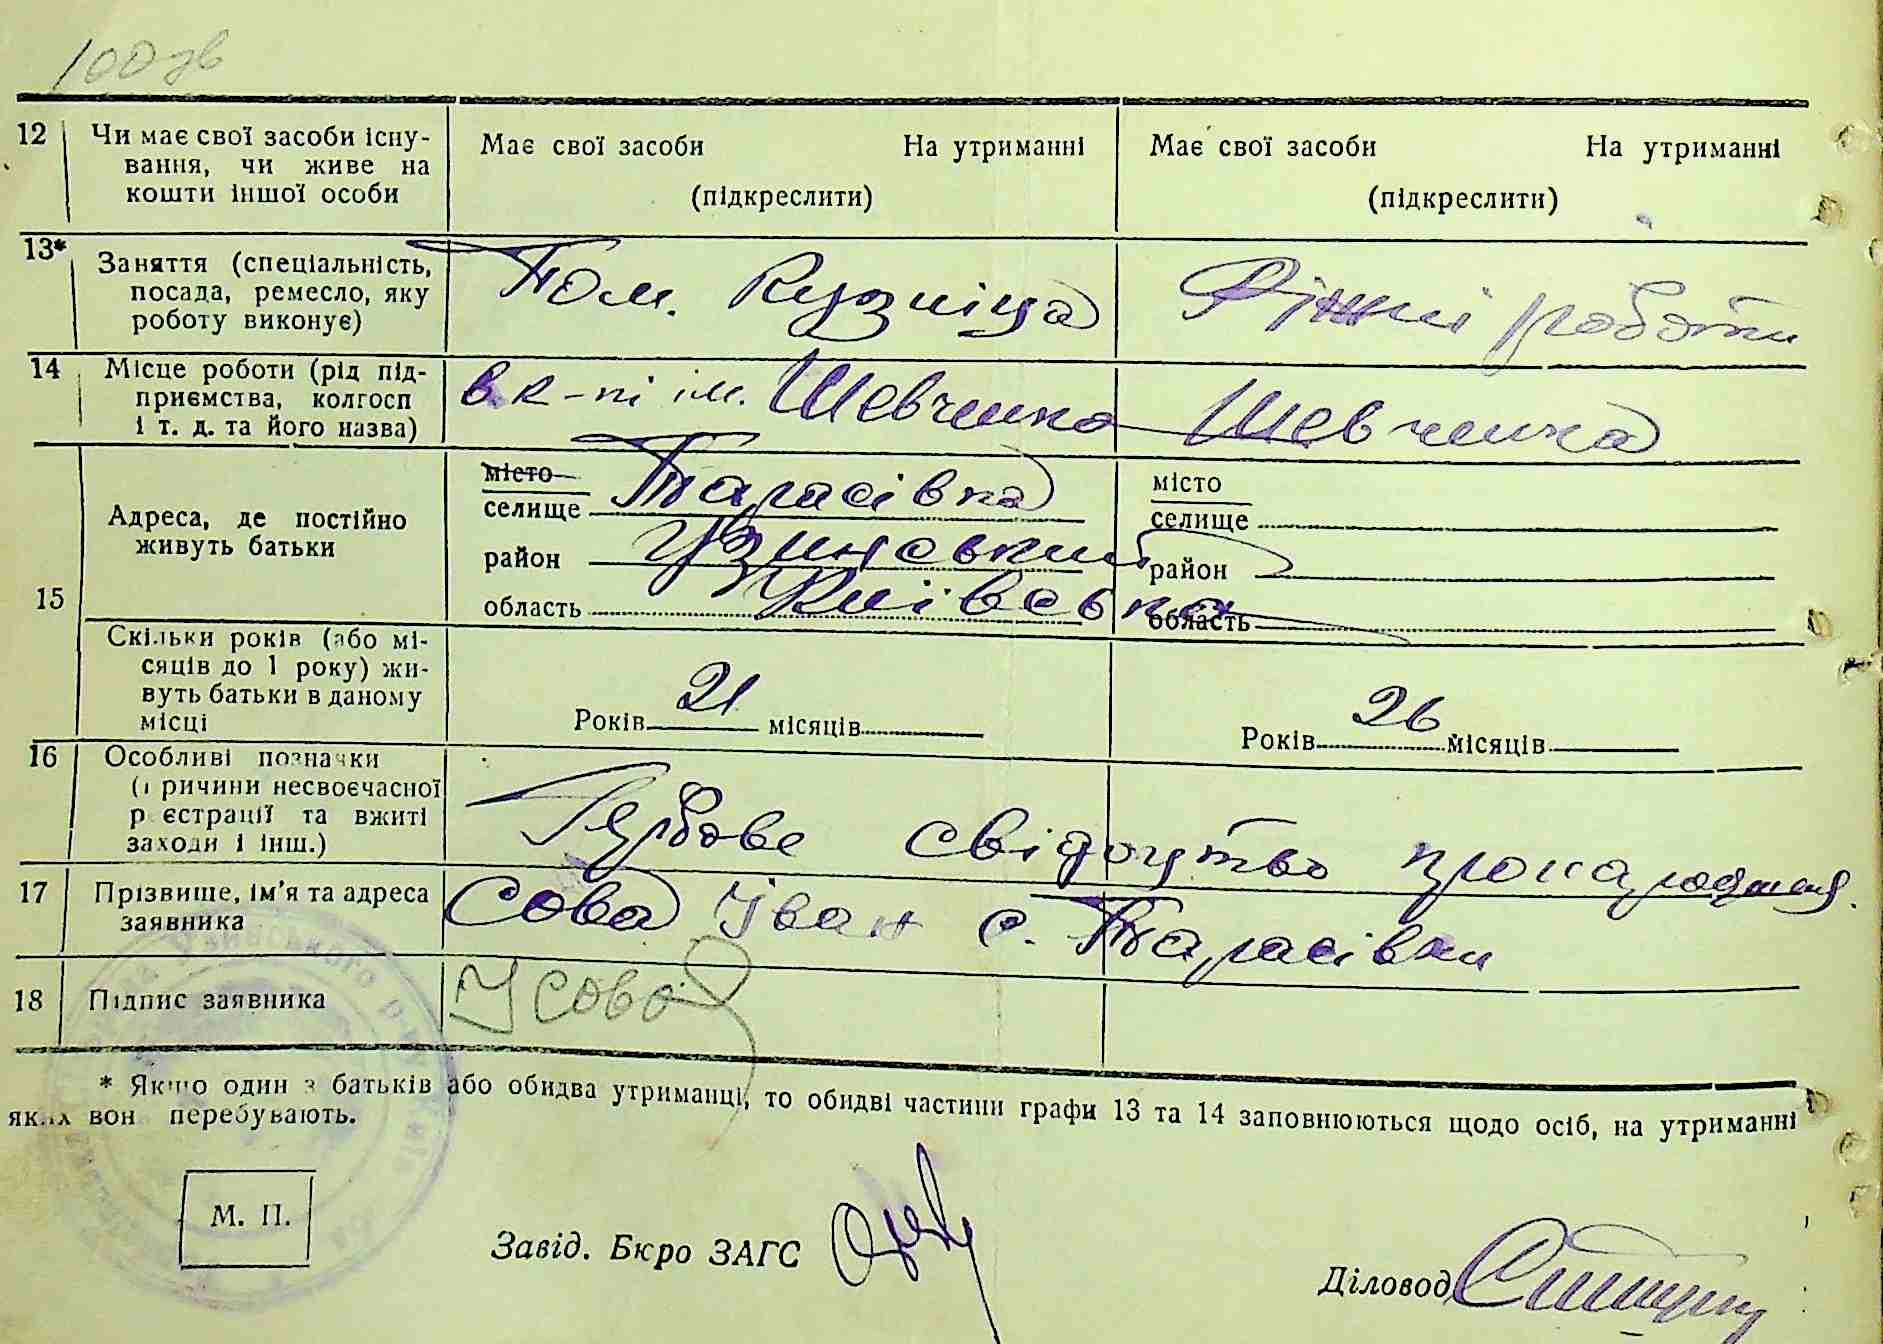 100
12 Чи має свої засоби існу- Має свої засоби На утриманні Має свої засоби На утриманні
вання, чи живе на
кошти іншої особи (підкреслити) (підкреслити)
13* Заняття (спеціальність, Пом. Кузніца Ріжні роботи
посада, ремесло, яку
роботу виконує)
14 Місце роботи (рід під- в к-пі ім. Шевченка Шевченка
приємства, колгосп
і т. д. та його назва)
15 Адреса, де постійно
живуть батьки
місто місто
селище Тарасівка селище
район Узинський район
область Київська область
Скільки років (або мі-
сяців до 1 року) жи-
вуть батьки в даному
місці
Років 21 місяців Років 26 місяців
16 Особливі позначки
(причини несвоєчасної
реєстрації та вжиті
заходи і інш.)
Гербове свідоцтво про народження.
17 Прізвище, ім'я та адреса Сова Іван с. Тарасівки
заявника
18 Підпис заявника У Сова
* Якщо один з батьків або обидва утриманці, то обидві частини графи 13 та 14 заповнюються щодо осіб, на утриманні
яких вони перебувають.
М. П.
Завід. Бюро ЗАГС
Діловод